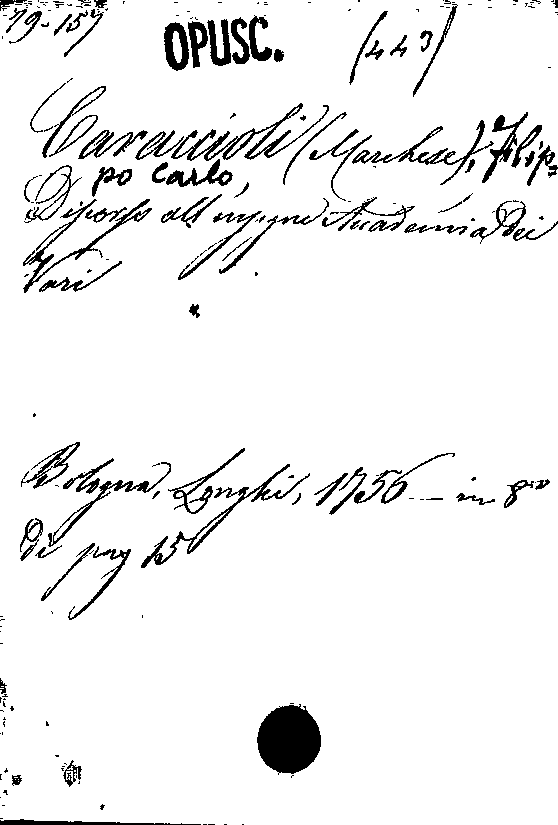 79-157
OPUSC. (443)
Caraccioli (Marchese), Filip=
po Carlo,
Discorso all'insigne Academia dei
Vari
Bologna, Longhi, 1756 - in 8vo
di pag 15